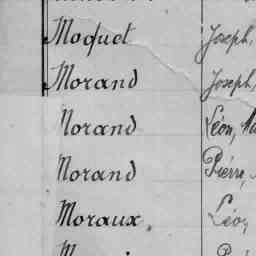 Moquet Joseph,
Morand Joseph,
Morand Léon,
Morand Pierre,
Moraux,